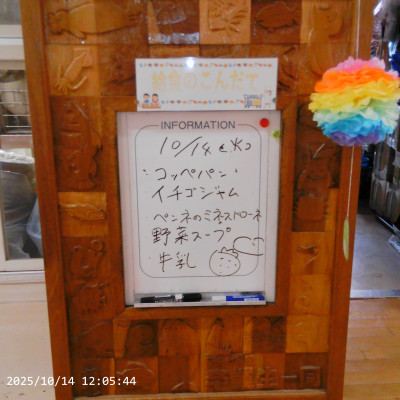 給食のこんだて
INFORMATION
10/14(火)
コッペパン
イチゴジャム
ペンネのミネストローネ
野菜スープ
牛乳
2025/10/14 12:05:44